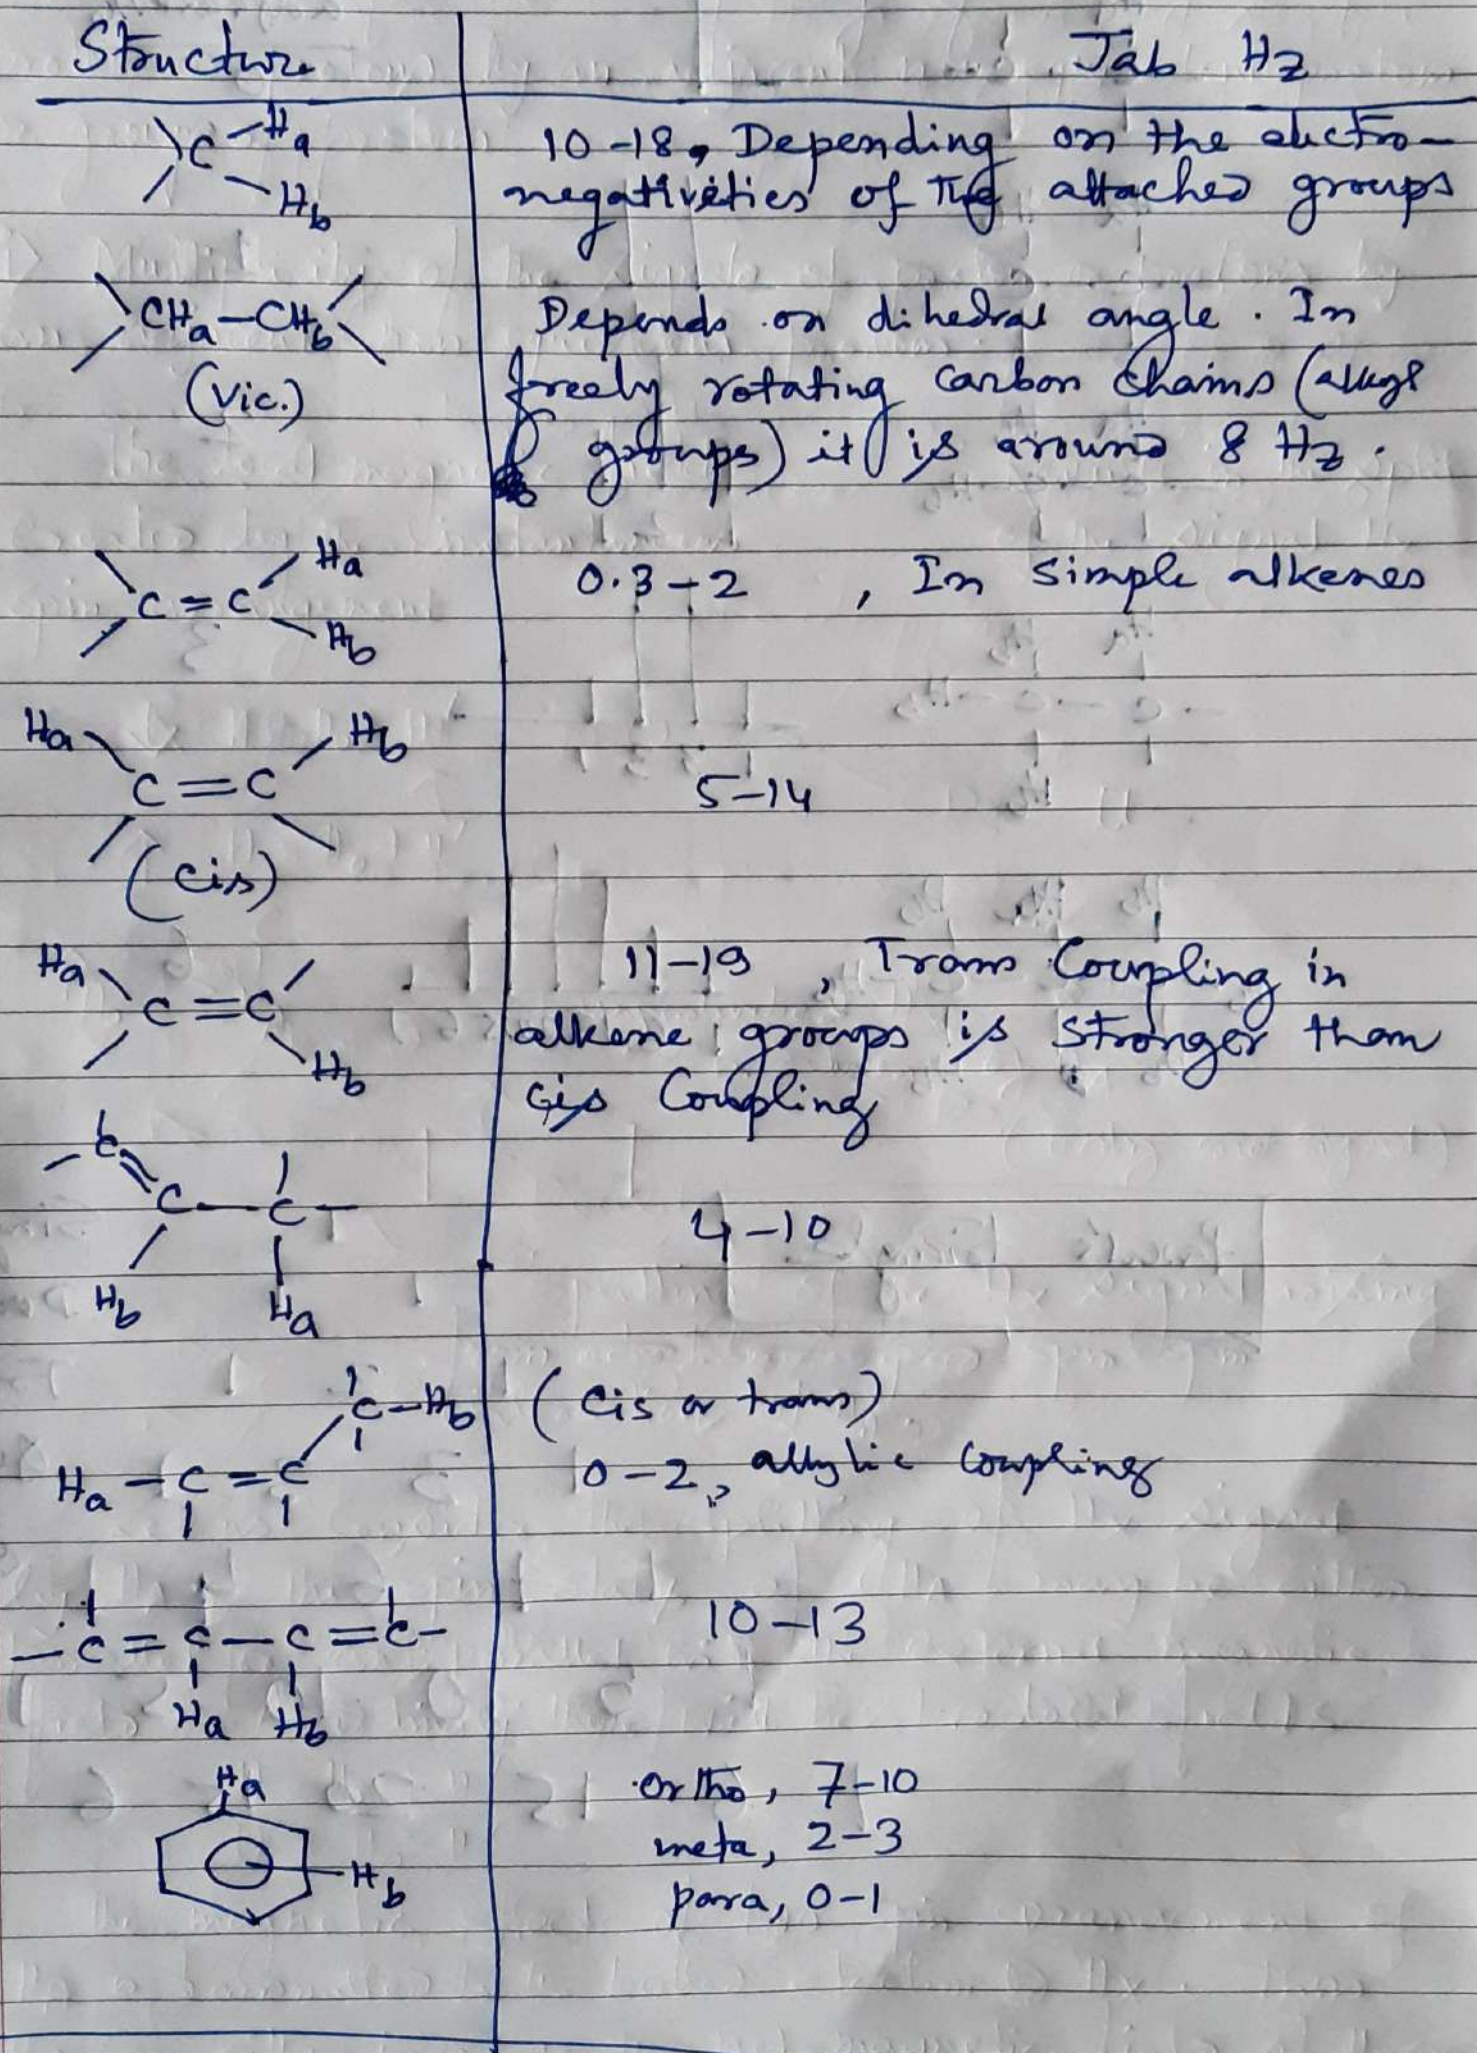 Structure Jab Hz
C Ha Hb
10-18, Depending on the electro-
negativities of the attached groups
CHa-CHb
(Vic.)
Depends on dihedral angle. In
freely rotating carbon chains (alkyl
groups) it is around 8 Hz.
C=C Ha Hb
0.3-2, In simple alkenes
Ha Hb
C=C
(cis)
5-14
Ha
C=C
Hb
11-19, Trans Coupling in
alkene groups is stronger than
cis Coupling
C
C-C
Hb Ha
4-10
C-Hb
Ha-C=C
(Cis or trans)
0-2, allylic coupling
-C=C-C=C-
Ha Hb
10-13
Ha
Hb
Ortho, 7-10
meta, 2-3
para, 0-1